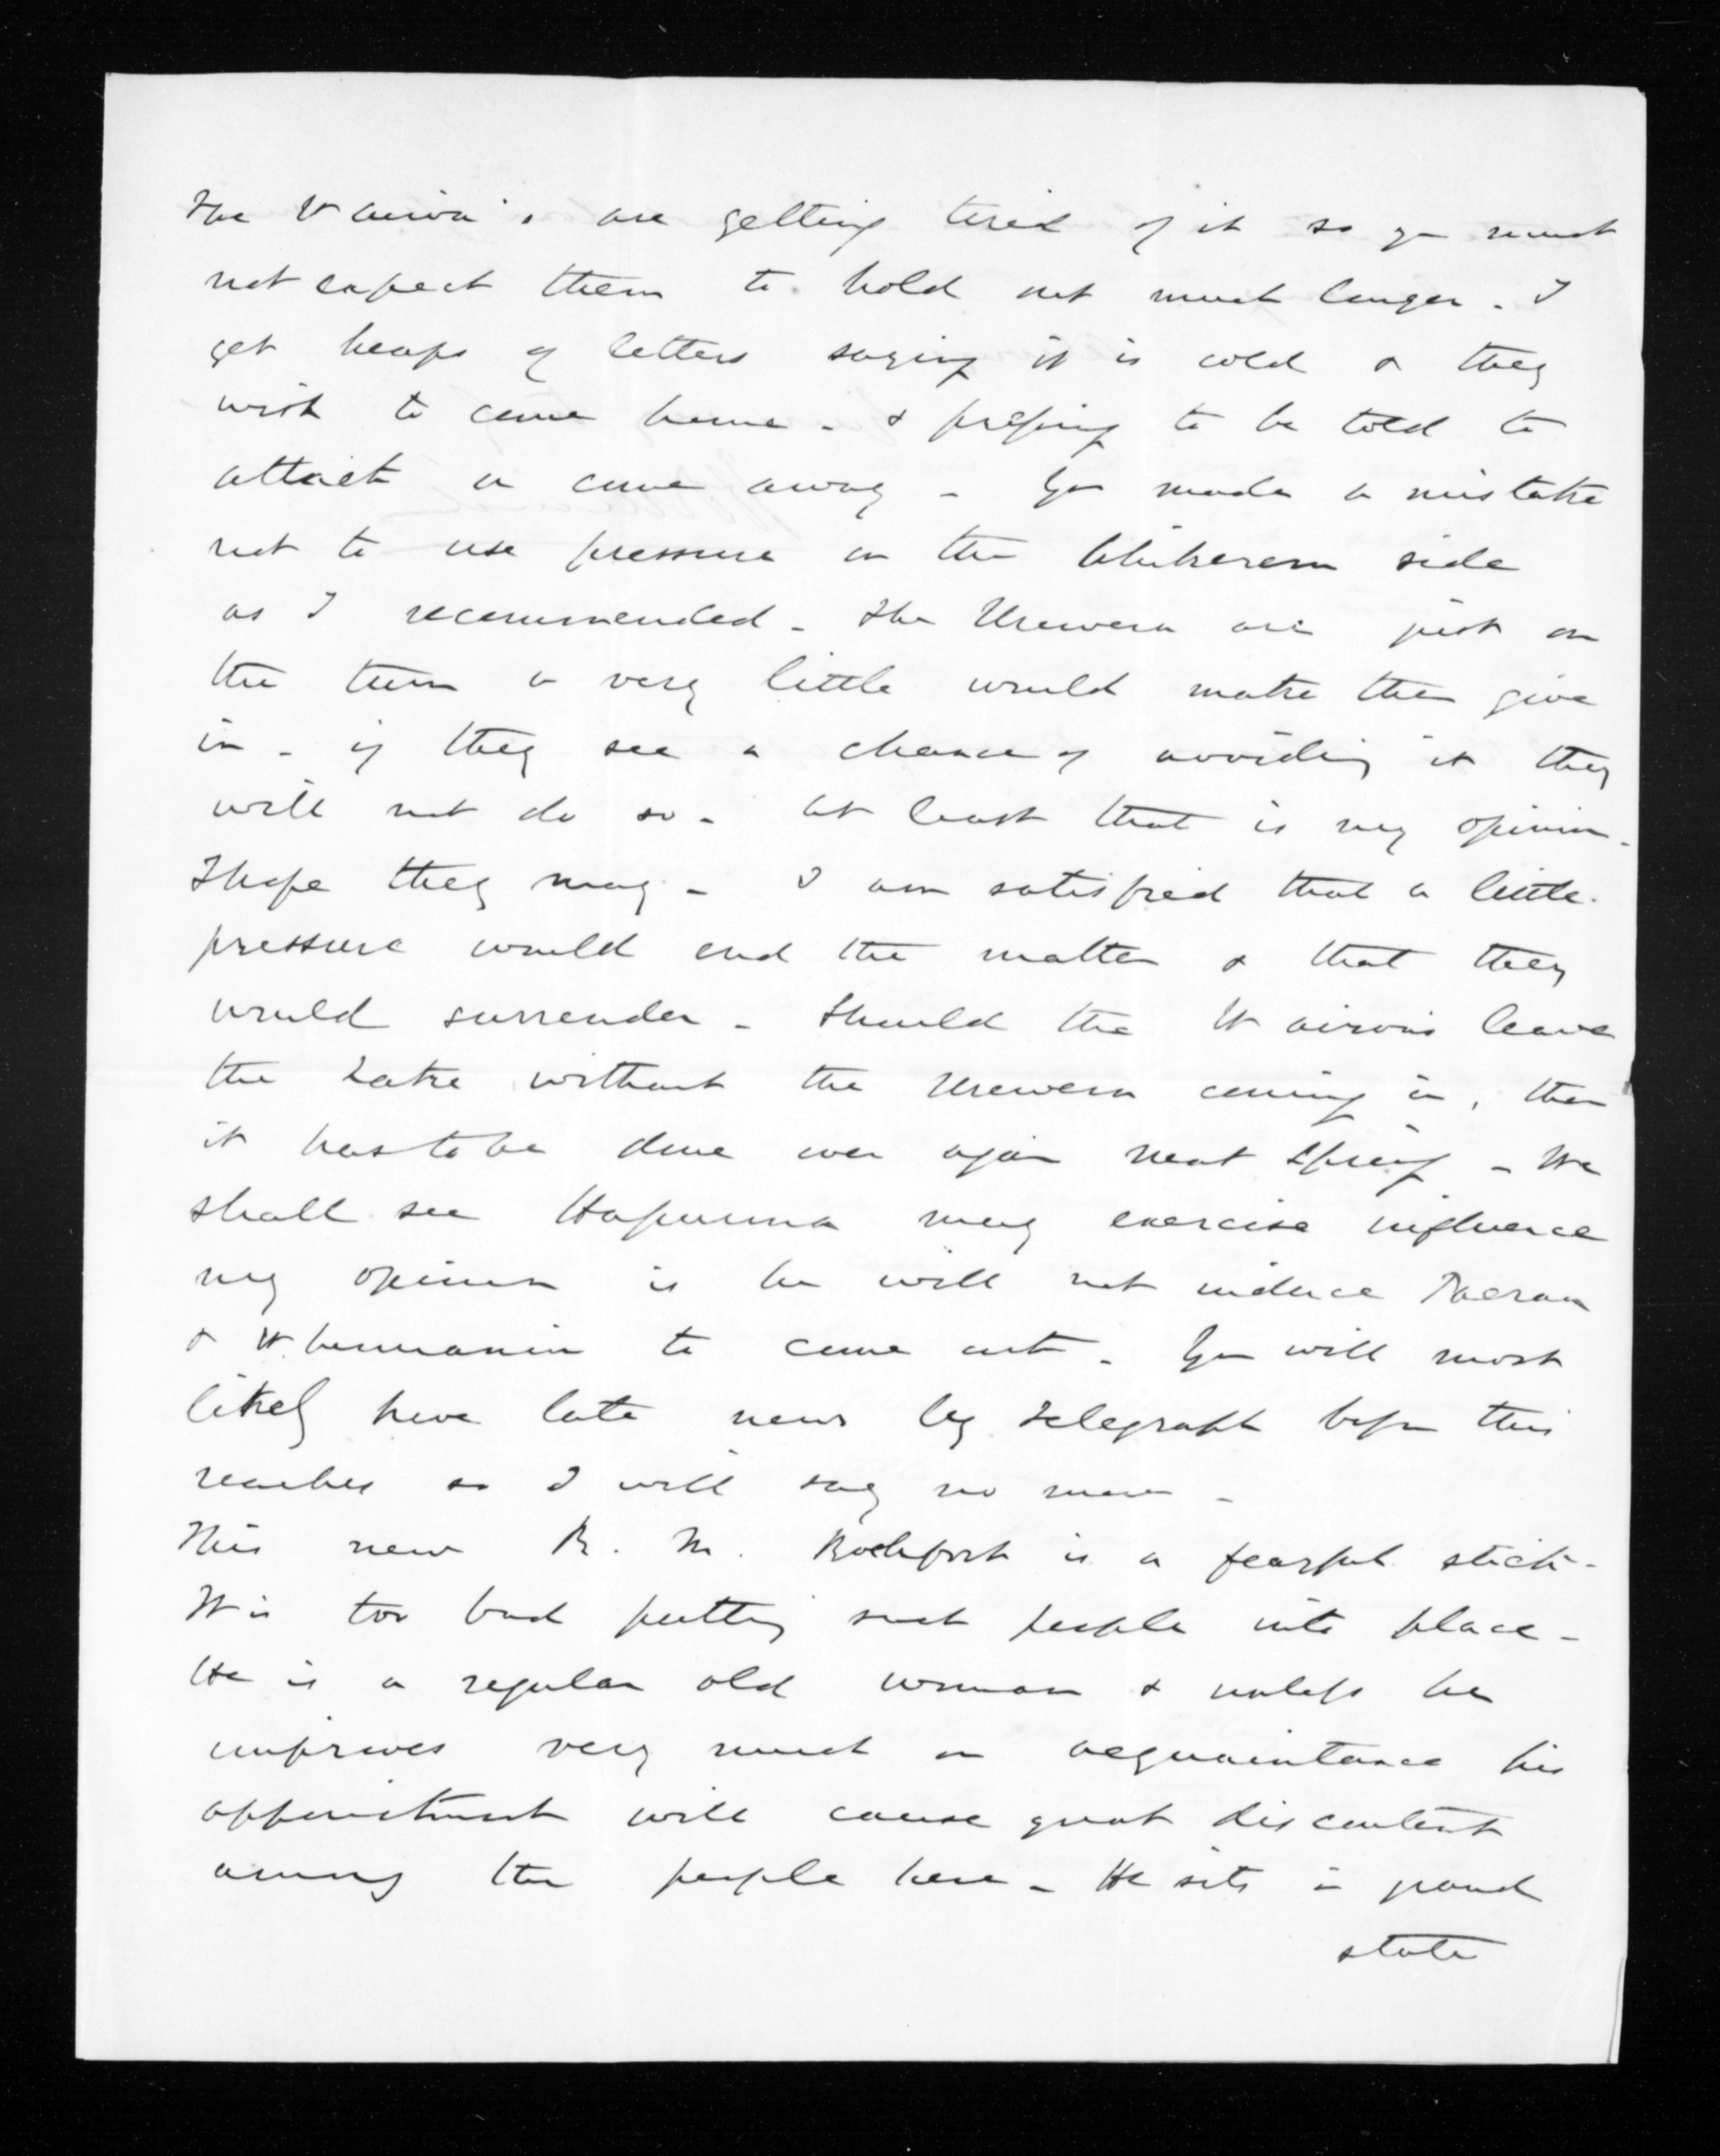 The Wairoa's are getting tired of it so you must
not expect them to hold out much longer. I
get heaps of letters saying it is cold & they
wish to come home - & pressing to be told to
attack or come away - You made a mistake
not to use pressure on the Ahikereru side
as I recommended - The Urewera are just on
the turn a very little would make them give
in - if they see a chance of avoiding it they
will not do so - At least that is my opinion -
I hope they may - I am satisfied that a little
pressure would end the matter & that they
would surrender - Should the Wairoa's leave
the Lake without the Urewera coming in, then
it has to be done over again next Spring - We
shall see Hapurona may exercise influence
my opinion is he will not induce Paerau
& Whenuanui to come out - You will most
likely have late news by telegraph before this
reaches so I will say no more -
This new R. M. Rochfort is a fearful stick -
It is too bad putting such people into place -
He is a regular old woman & unless he
improves very much on acquaintance his
appointment will cause great discontent
among the people here - He sits in grand
state